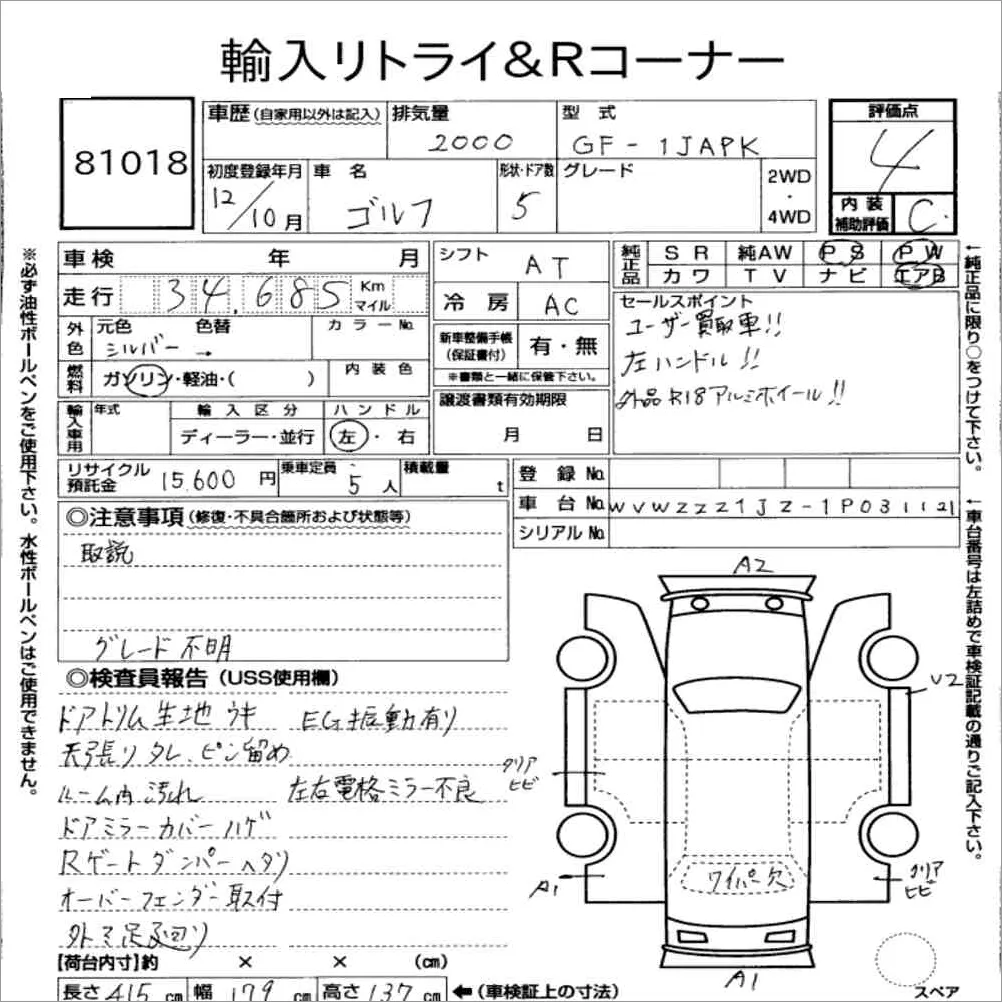 輸入リトライ&Rコーナー
81018
車歴(自家用以外は記入) 排気量 2000 型式 GF-1JAPK 評価点 4
初度登録年月 12/10月 車名 ゴルフ 形状・ドア数 5 グレード 2WD・4WD 内装補助評価 C
車検 年 月 シフト AT 純正品 SR 純AW PS PW
カワ TV ナビ エアB
走行 34,685 Km マイル 冷房 AC セールスポイント
ユーザー買取車!!
左ハンドル!!
外品R18アルミホイール!!
外色 元色 色替 カラーNo.
シルバー →
新車整備手帳(保証書付) 有・無
※書類と一緒に保管下さい。
燃料 ガソリン・軽油・( ) 内装色
譲渡書類有効期限 月 日
輸入車用 年式 輸入区分 ハンドル
ディーラー・並行 左・右
リサイクル預託金 15,600円 乗車定員 5人 積載量 t
登録No.
車台No. WVWZZZ1JZ-1P031121
シリアルNo.
◎注意事項(修復・不具合箇所および状態等)
取説
グレード不明
◎検査員報告(USS使用欄)
ドアトリム生地ウキ EG振動有り
天張りタレ、ピン留め
ルーム内汚れ 左右電格ミラー不良
ドアミラーカバーハゲ
Rゲートダンパーヘタリ
オーバーフェンダー取付
外ミ足廻り
【荷台内寸】約 × × (cm)
長さ 415 cm 幅 179 cm 高さ 137 cm ←(車検証上の寸法)
A2
U2
クリアヒビ
A1
ワイパー欠
クリアヒビ
A1
スペア
※必ず油性ボールペンをご使用下さい。水性ボールペンはご使用できません。
←純正品に限り○をつけて下さい。
←車台番号は左詰めで車検証記載の通りご記入下さい。